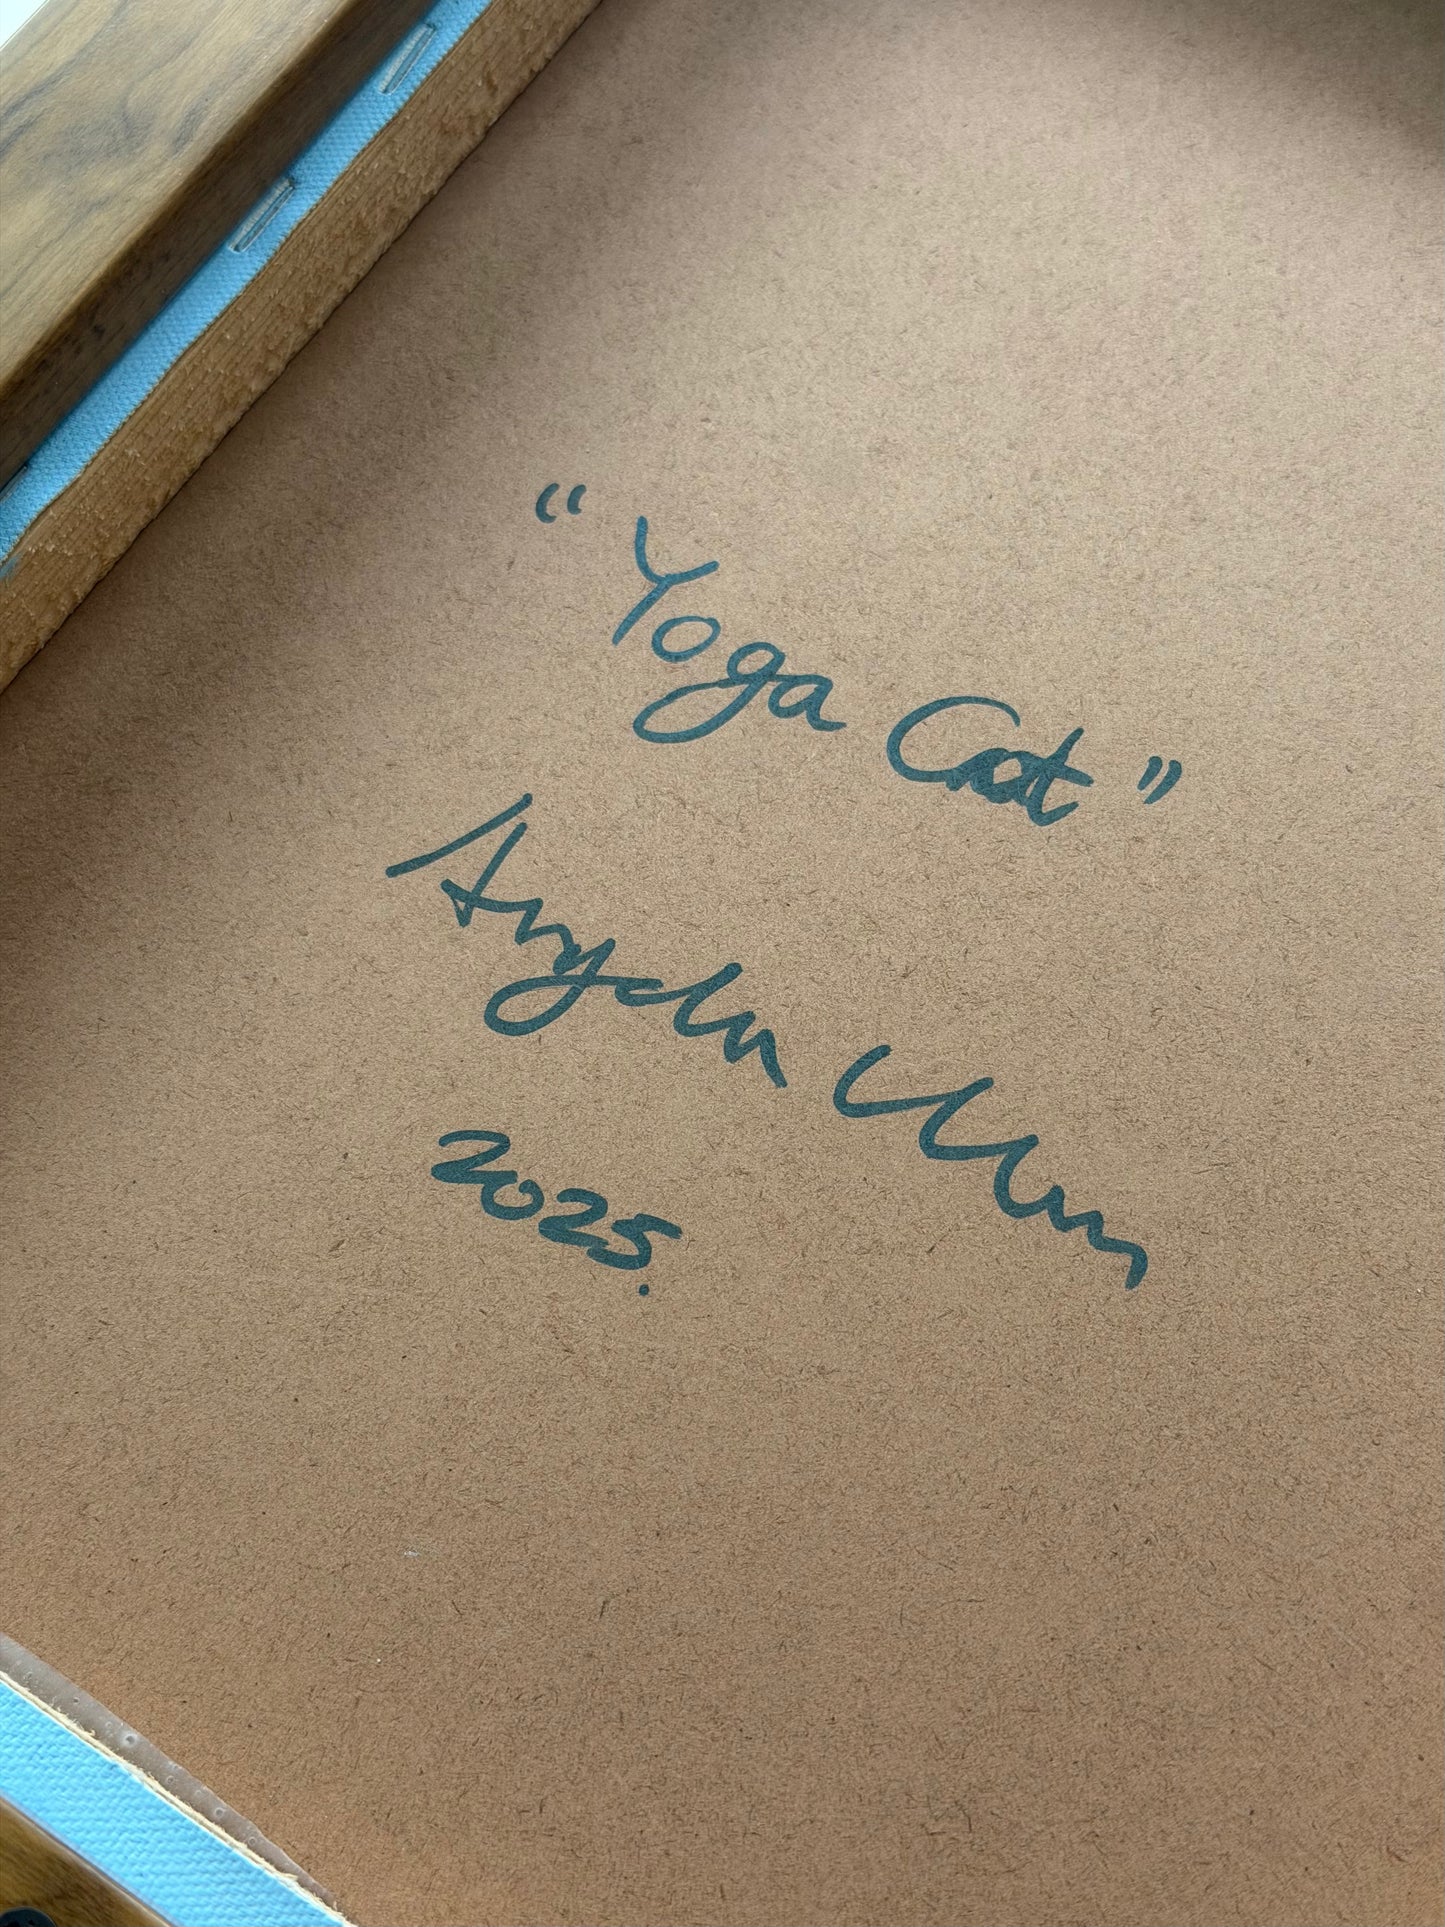 “Yoga Cat”
Angela
2025.